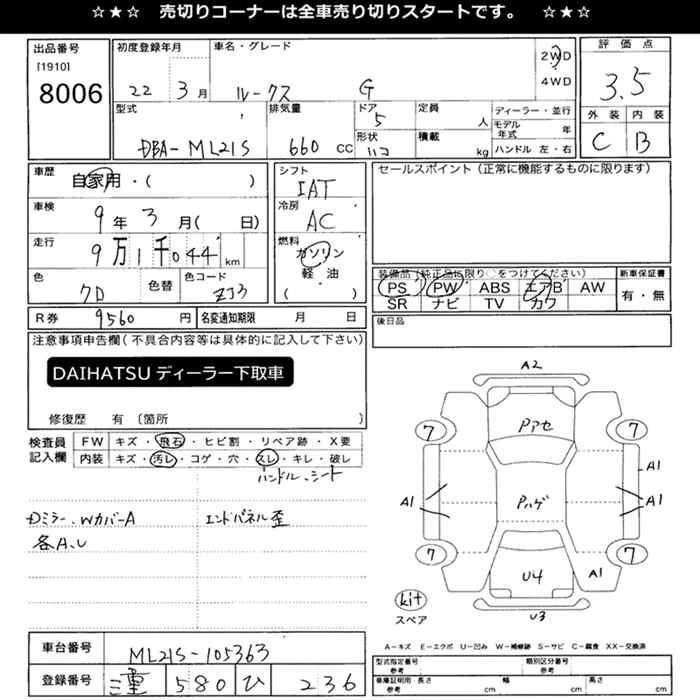 ☆★☆ 売切りコーナーは全車売り切りスタートです。 ☆★☆
出品番号
[1910]
8006
初度登録年月
22 3月
車名・グレード
ルークス G
2WD
4WD
評価点
3.5
外装 内装
C B
型式
DBA-ML21S
排気量
660 CC
ドア
5
形状
ハコ
定員
人
積載
kg
ディーラー・並行
モデル年式 年
ハンドル 左・右
車歴
自家用・( )
車検
9年3月( 日)
走行
9万1千044km
色
色替
色コード
ZJ3
シフト
IAT
冷房
AC
燃料
ガソリン
軽・油
( )
セールスポイント(正常に機能するものに限ります)
装備品(純正品に限り○をつけてください)
PS PW ABS エアB AW
SR ナビ TV カワ
新車保証書
有・無
R券 9560円
名変通知期限 月 日
後日品
注意事項申告欄(不具合内容等は具体的に記入して下さい)
DAIHATSU ディーラー下取車
修復歴 有 〔箇所
検査員
記入欄
FW キズ・飛石・ヒビ割・リペア跡・X要
内装 キズ・汚レ・コゲ・穴・スレ・キレ・破レ
ハンドル、シート
Dミラー、WカバーA
各A、U
エンドパネル歪
A2
Pアセ
7 7
A1
A1 Pハゲ A1
7 7
U4 A1
U3
kit
スペア
A-キズ E-エクボ U-凹み W-補修跡 S-サビ C-腐食 XX-交換済
車台番号 ML21S-105363
登録番号 三重 580 ひ 236
型式指定番号
参考
類別区分番号
参考
車庫証明用・長さ
参考 cm
幅
cm
高さ
cm